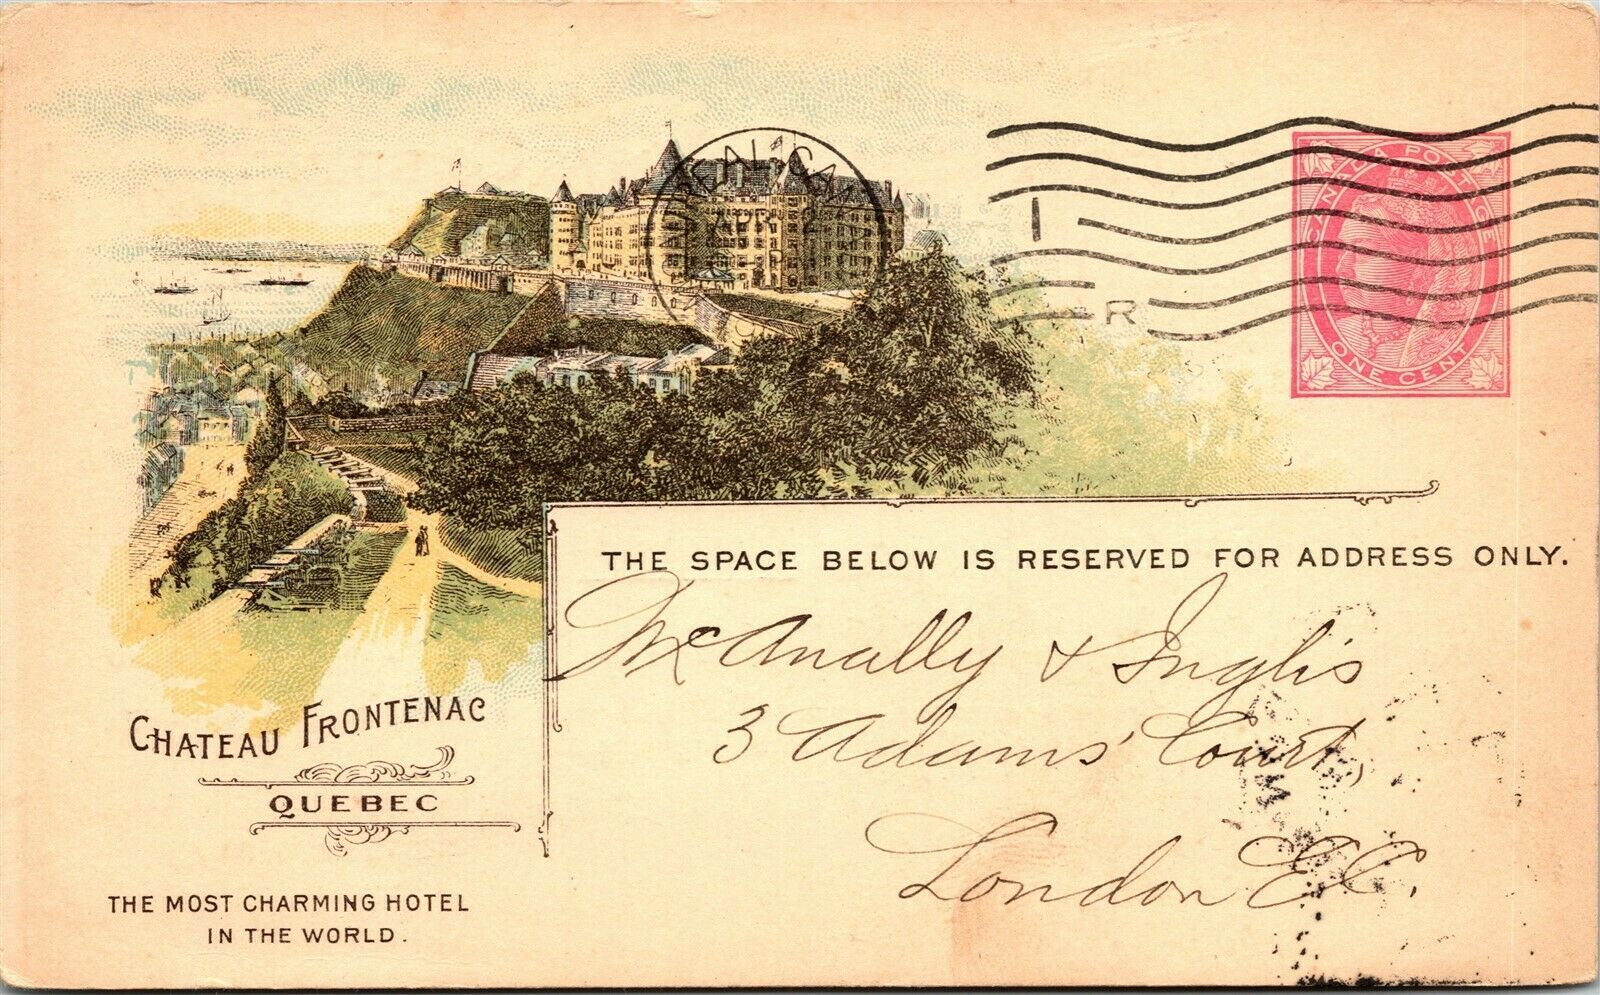 CANADA POSTAGE
ONE CENT
I
R
THE SPACE BELOW IS RESERVED FOR ADDRESS ONLY.
McAnally & Inglis
3 Adams' Court,
London E.C.
CHATEAU FRONTENAC
QUEBEC
THE MOST CHARMING HOTEL
IN THE WORLD.